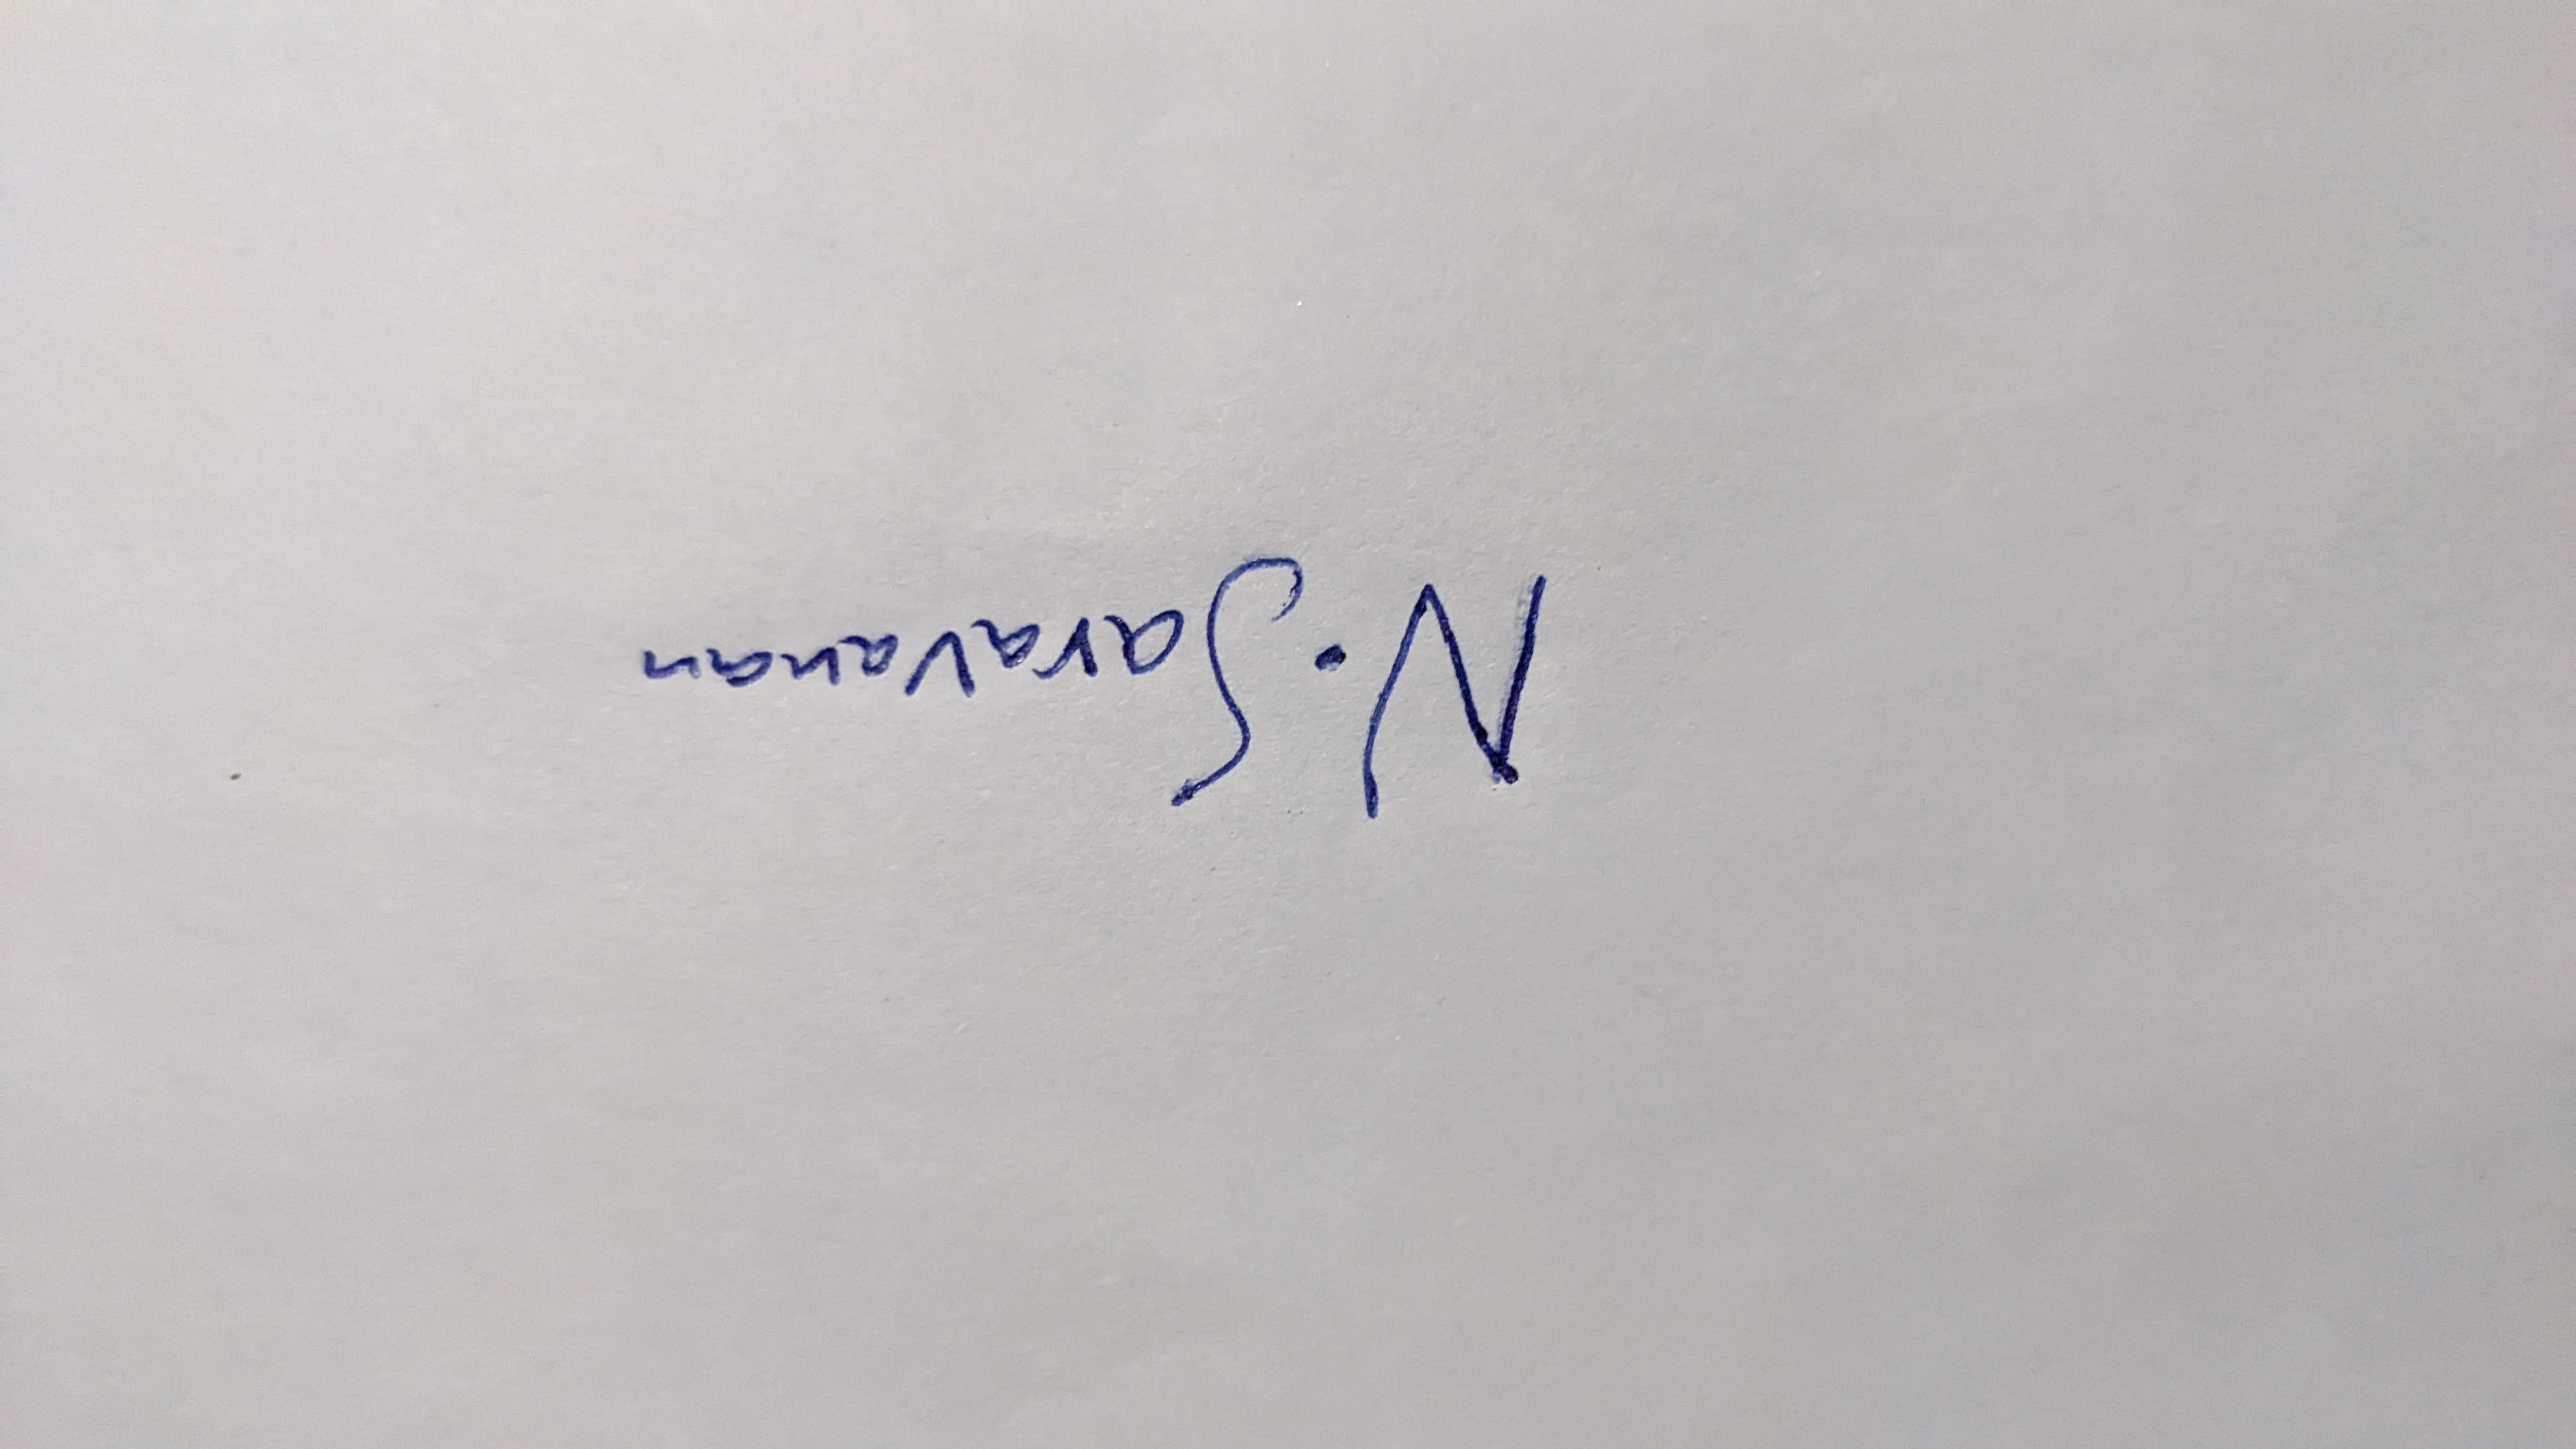 N. Saravanan